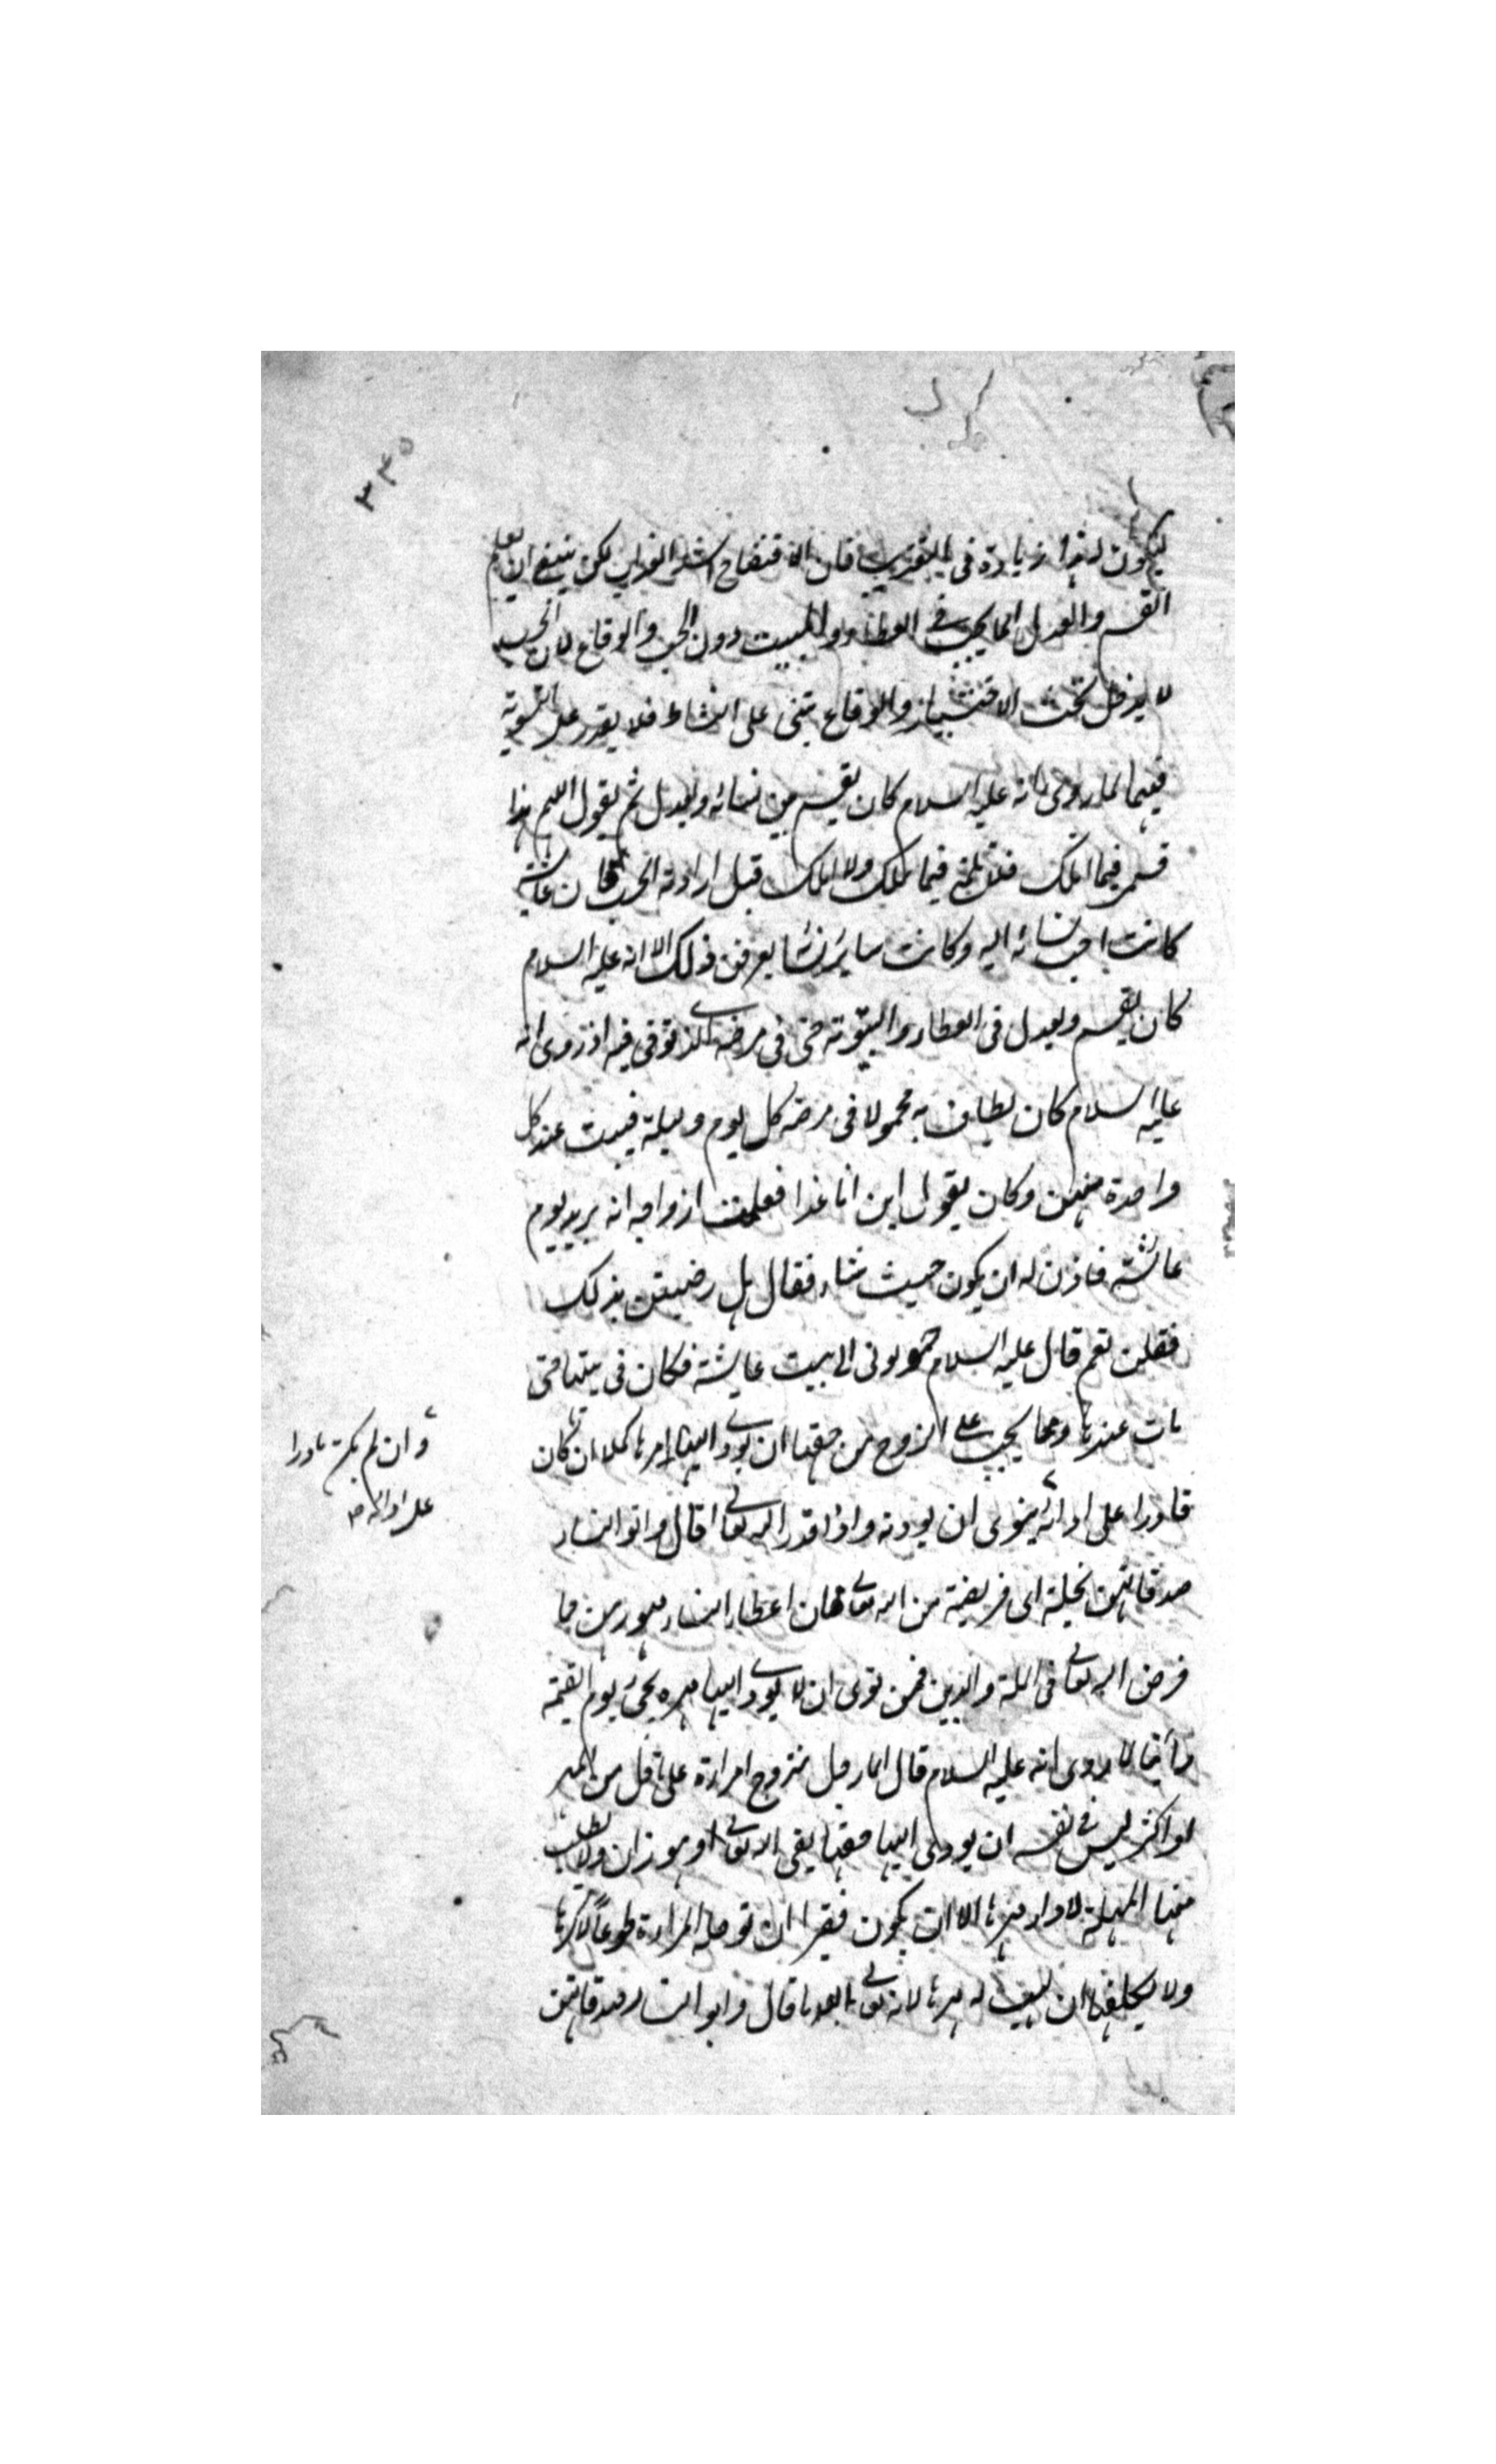 ٣٣٥
ليكون لهذا زيادة في التعذيب فان الافتضاح اشد العذاب لكن ينبغي ان يعلم
القسم والعدل انما يجب في العطاء والمبيت دون الحب والوقاع لان الحب
لا يدخل تحت الاختيار والوقاع يبتني على النشاط فلا يقدر على التسوية
فيهما لما روى انه عليه السلام كان يقسم بين نسائه ويعدل ثم يقول اللهم هذا
قسمي فيما املك فلا تلمني فيما تملك ولا املك قيل اراد به الحب فان عائشة
كانت احب نسائه اليه وكانت ساير نسائه يعرفن ذلك الا انه عليه السلام
كان يقسم ويعدل في العطاء والبيتوتة حتى في مرضه الذي توفي فيه اذ روى انه
عليه السلام كان يطاف به محمولا في مرضه كل يوم وليلة فيبيت عند كل
واحدة منهن وكان يقول اين انا غدا فعلمت ازواجه انه يريد يوم
عائشة فاذن له ان يكون حيث شاء فقال هل رضيتن بذلك
فقلن نعم قال عليه السلام حولوني الى بيت عايشة فكان في بيتها حتى
مات عندها ومما يجب على الزوج من حقها ان يؤدي اليها مهرها كملا ان كان
قادرا على ادائه ينوى ان يوديه واذا قدر الله تعالى قال واتوا النساء
صدقاتهن نحلة اى فريضة من الله تعالى فان اعطاء النساء مهورهن مما
فرض الله تعالى في الملة والدين فمن نوى ان لا يؤدي اليها مهرها يجئ يوم القيمة
زانيا لما روى انه عليه السلام قال ايما رجل تزوج امراة على اقل من المهر
او اكثر ليس في نفسه ان يودى اليها حقها يلقى الله تعالى وهو زان ولا يطلب
منها المهلة لاداء مهرها الا ان يكون فقيرا ان توجله المراة طوعا لا كرها
ولا يكلفها ان تهب له مهرها لانه تعالى بعدما قال واتوا النساء صدقاتهن
وان لم يكن قادرا
على ادائه صح